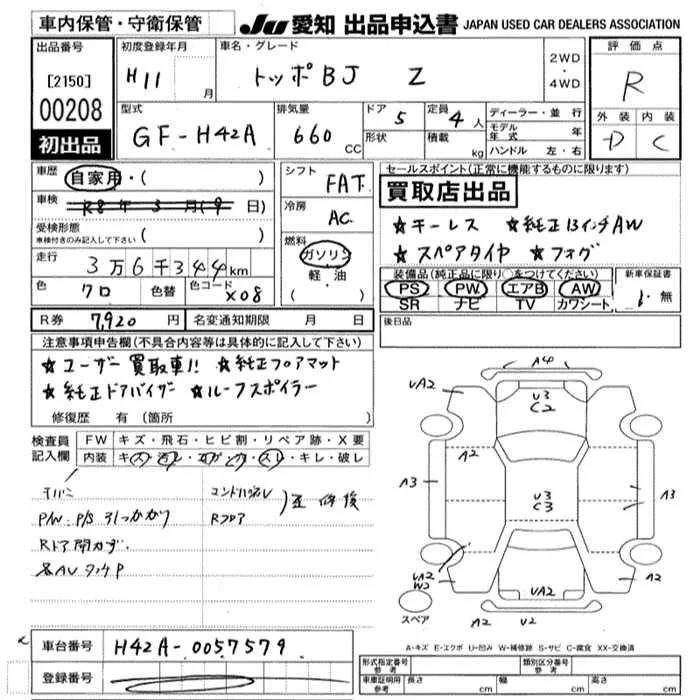 車内保管・守衛保管
JU 愛知 出品申込書 JAPAN USED CAR DEALERS ASSOCIATION
出品番号
[2150]
00208
初出品
初度登録年月
H11 月
車名・グレード
トッポBJ Z
2WD
・
4WD
評価点
R
型式
GF-H42A
排気量
660 CC
ドア 5
形状
定員 4人
積載 kg
ディーラー・並行
モデル年式 年
ハンドル 左・右
外装 内装
D C
車歴 自家用・( )
車検 R8年3月(9日)
受検形態
車検付きのみ記入して下さい ( )
走行 3万6千344km
色 クロ 色替 色コード X08
シフト
FAT
冷房
AC
燃料
ガソリン
軽・油
セールスポイント(正常に機能するものに限ります)
買取店出品
★キーレス ★純正13インチAW
★スペアタイヤ ★フォグ
装備品(純正品に限り○をつけてください)
PS PW エアB AW
SR ナビ TV カワシート
新車保証書
・無
R券 7,920円 名変通知期限 月 日
後日品
注意事項申告欄(不具合内容等は具体的に記入して下さい)
★ユーザー買取車!! ★純正フロアマット
★純正ドアバイザー ★ルーフスポイラー
修復歴 有(箇所
検査員
記入欄
FW キズ・飛石・ヒビ割・リペア跡・X要
内装 キズ・汚レ・コゲ・スレ・キレ・破レ
P/W P/S 引っかかり
Rフロア
修復
Rドア開カず
車台番号 H42A-0057579
登録番号
A4
UA2 U3 C2
A2
A3 U3 C3 A3
UA2 W2 UA2 A2
スペア
A2 U2
A-キズ E-エクボ U-凹み W-補修跡 S-サビ C-腐食 XX-交換済
型式指定番号 参考
類別区分番号 参考
車庫証明用 参考 長さ cm 幅 cm 高さ cm